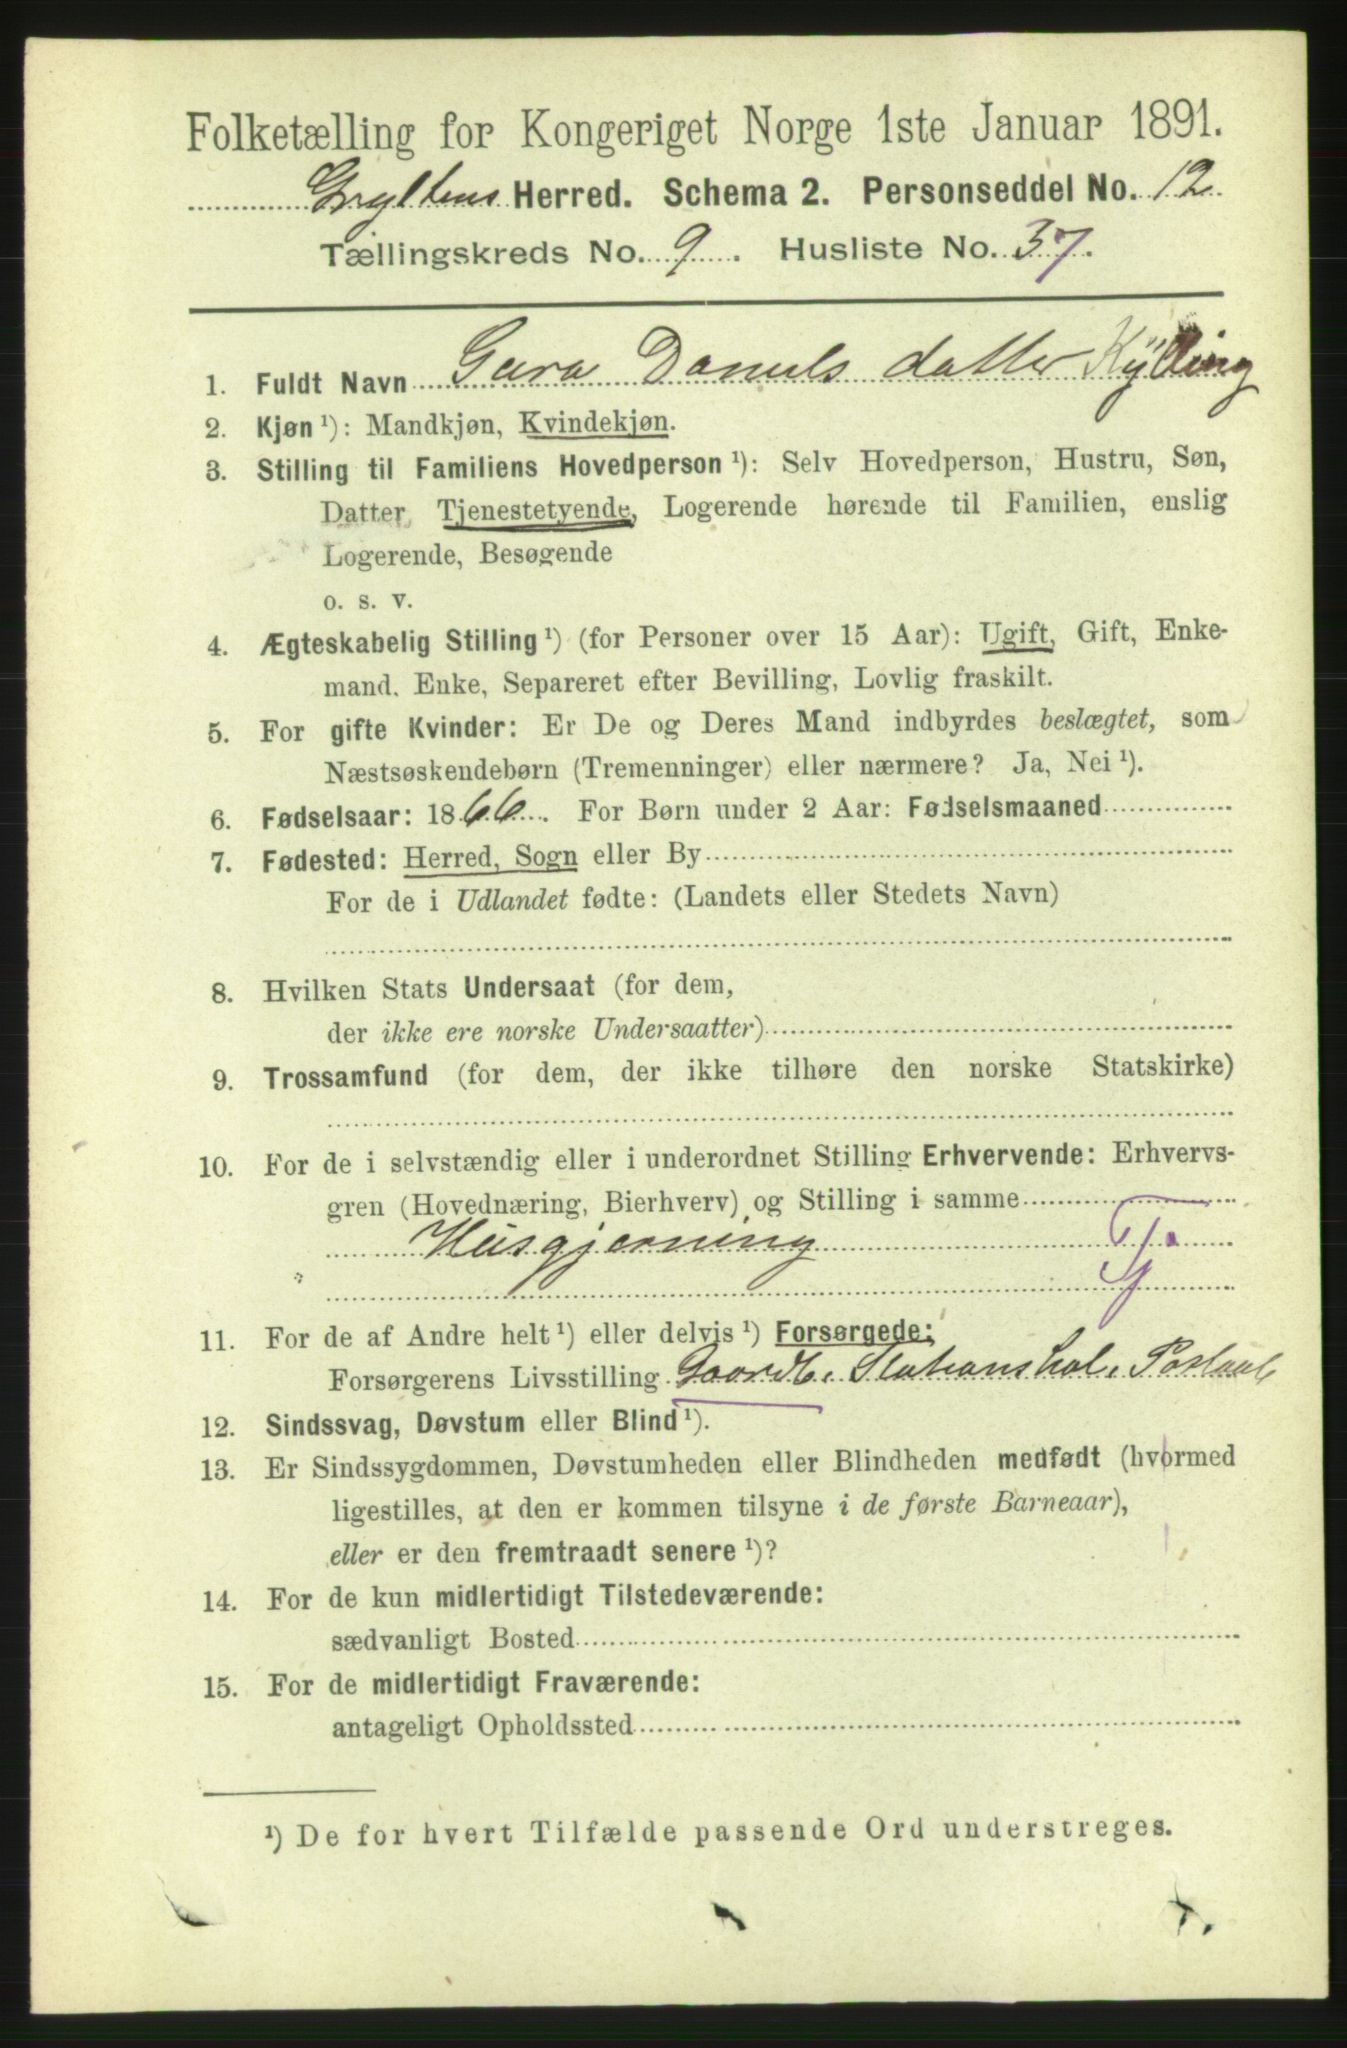 Folketælling for Kongeriget Norge 1ste Januar 1891.
Gryttens Herred. Schema 2. Personseddel No. 12
Tællingskreds No. 9. Husliste No. 37.
1. Fuldt Navn Daniels datter Kylling
2. Kjøn ¹): Mandkjøn, Kvindekjøn.
3. Stilling til Familiens Hovedperson ¹): Selv Hovedperson, Hustru, Søn,
Datter, Tjenestetyende, Logerende hørende til Familien, enslig
Logerende, Besøgende
o. s. v.
4. Ægteskabelig Stilling ¹) (for Personer over 15 Aar): Ugift, Gift, Enke-
mand, Enke, Separeret efter Bevilling, Lovlig fraskilt.
5. For gifte Kvinder: Er De og Deres Mand indbyrdes beslægtet, som
Næstsøskendebørn (Tremenninger) eller nærmere? Ja, Nei ¹).
6. Fødselsaar: 1866. For Børn under 2 Aar: Fødselsmaaned
7. Fødested: Herred, Sogn eller By
For de i Udlandet fødte: (Landets eller Stedets Navn)
8. Hvilken Stats Undersaat (for dem,
der ikke ere norske Undersaatter)
9. Trossamfund (for dem, der ikke tilhøre den norske Statskirke)
10. For de i selvstændig eller i underordnet Stilling Erhvervende: Erhvervs-
gren (Hovednæring, Bierhverv) og Stilling i samme
Husgjerning Tj.
11. For de af Andre helt ¹) eller delvis ¹) Forsørgede:
Forsørgerens Livsstilling Gaardb. Stationshol.
12. Sindssvag, Døvstum eller Blind ¹).
13. Er Sindssygdommen, Døvstumheden eller Blindheden medfødt (hvormed
ligestilles, at den er kommen tilsyne i de første Barneaar),
eller er den fremtraadt senere ¹)?
14. For de kun midlertidigt Tilstedeværende:
sædvanligt Bosted
15. For de midlertidigt Fraværende:
antageligt Opholdssted
¹) De for hvert Tilfælde passende Ord understreges.